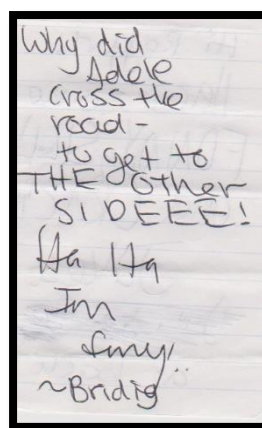 Why did
Adele
cross the
road -
to get to
THE Other
SIDEEE!
Ha Ha
Im
funny!
~Bridig